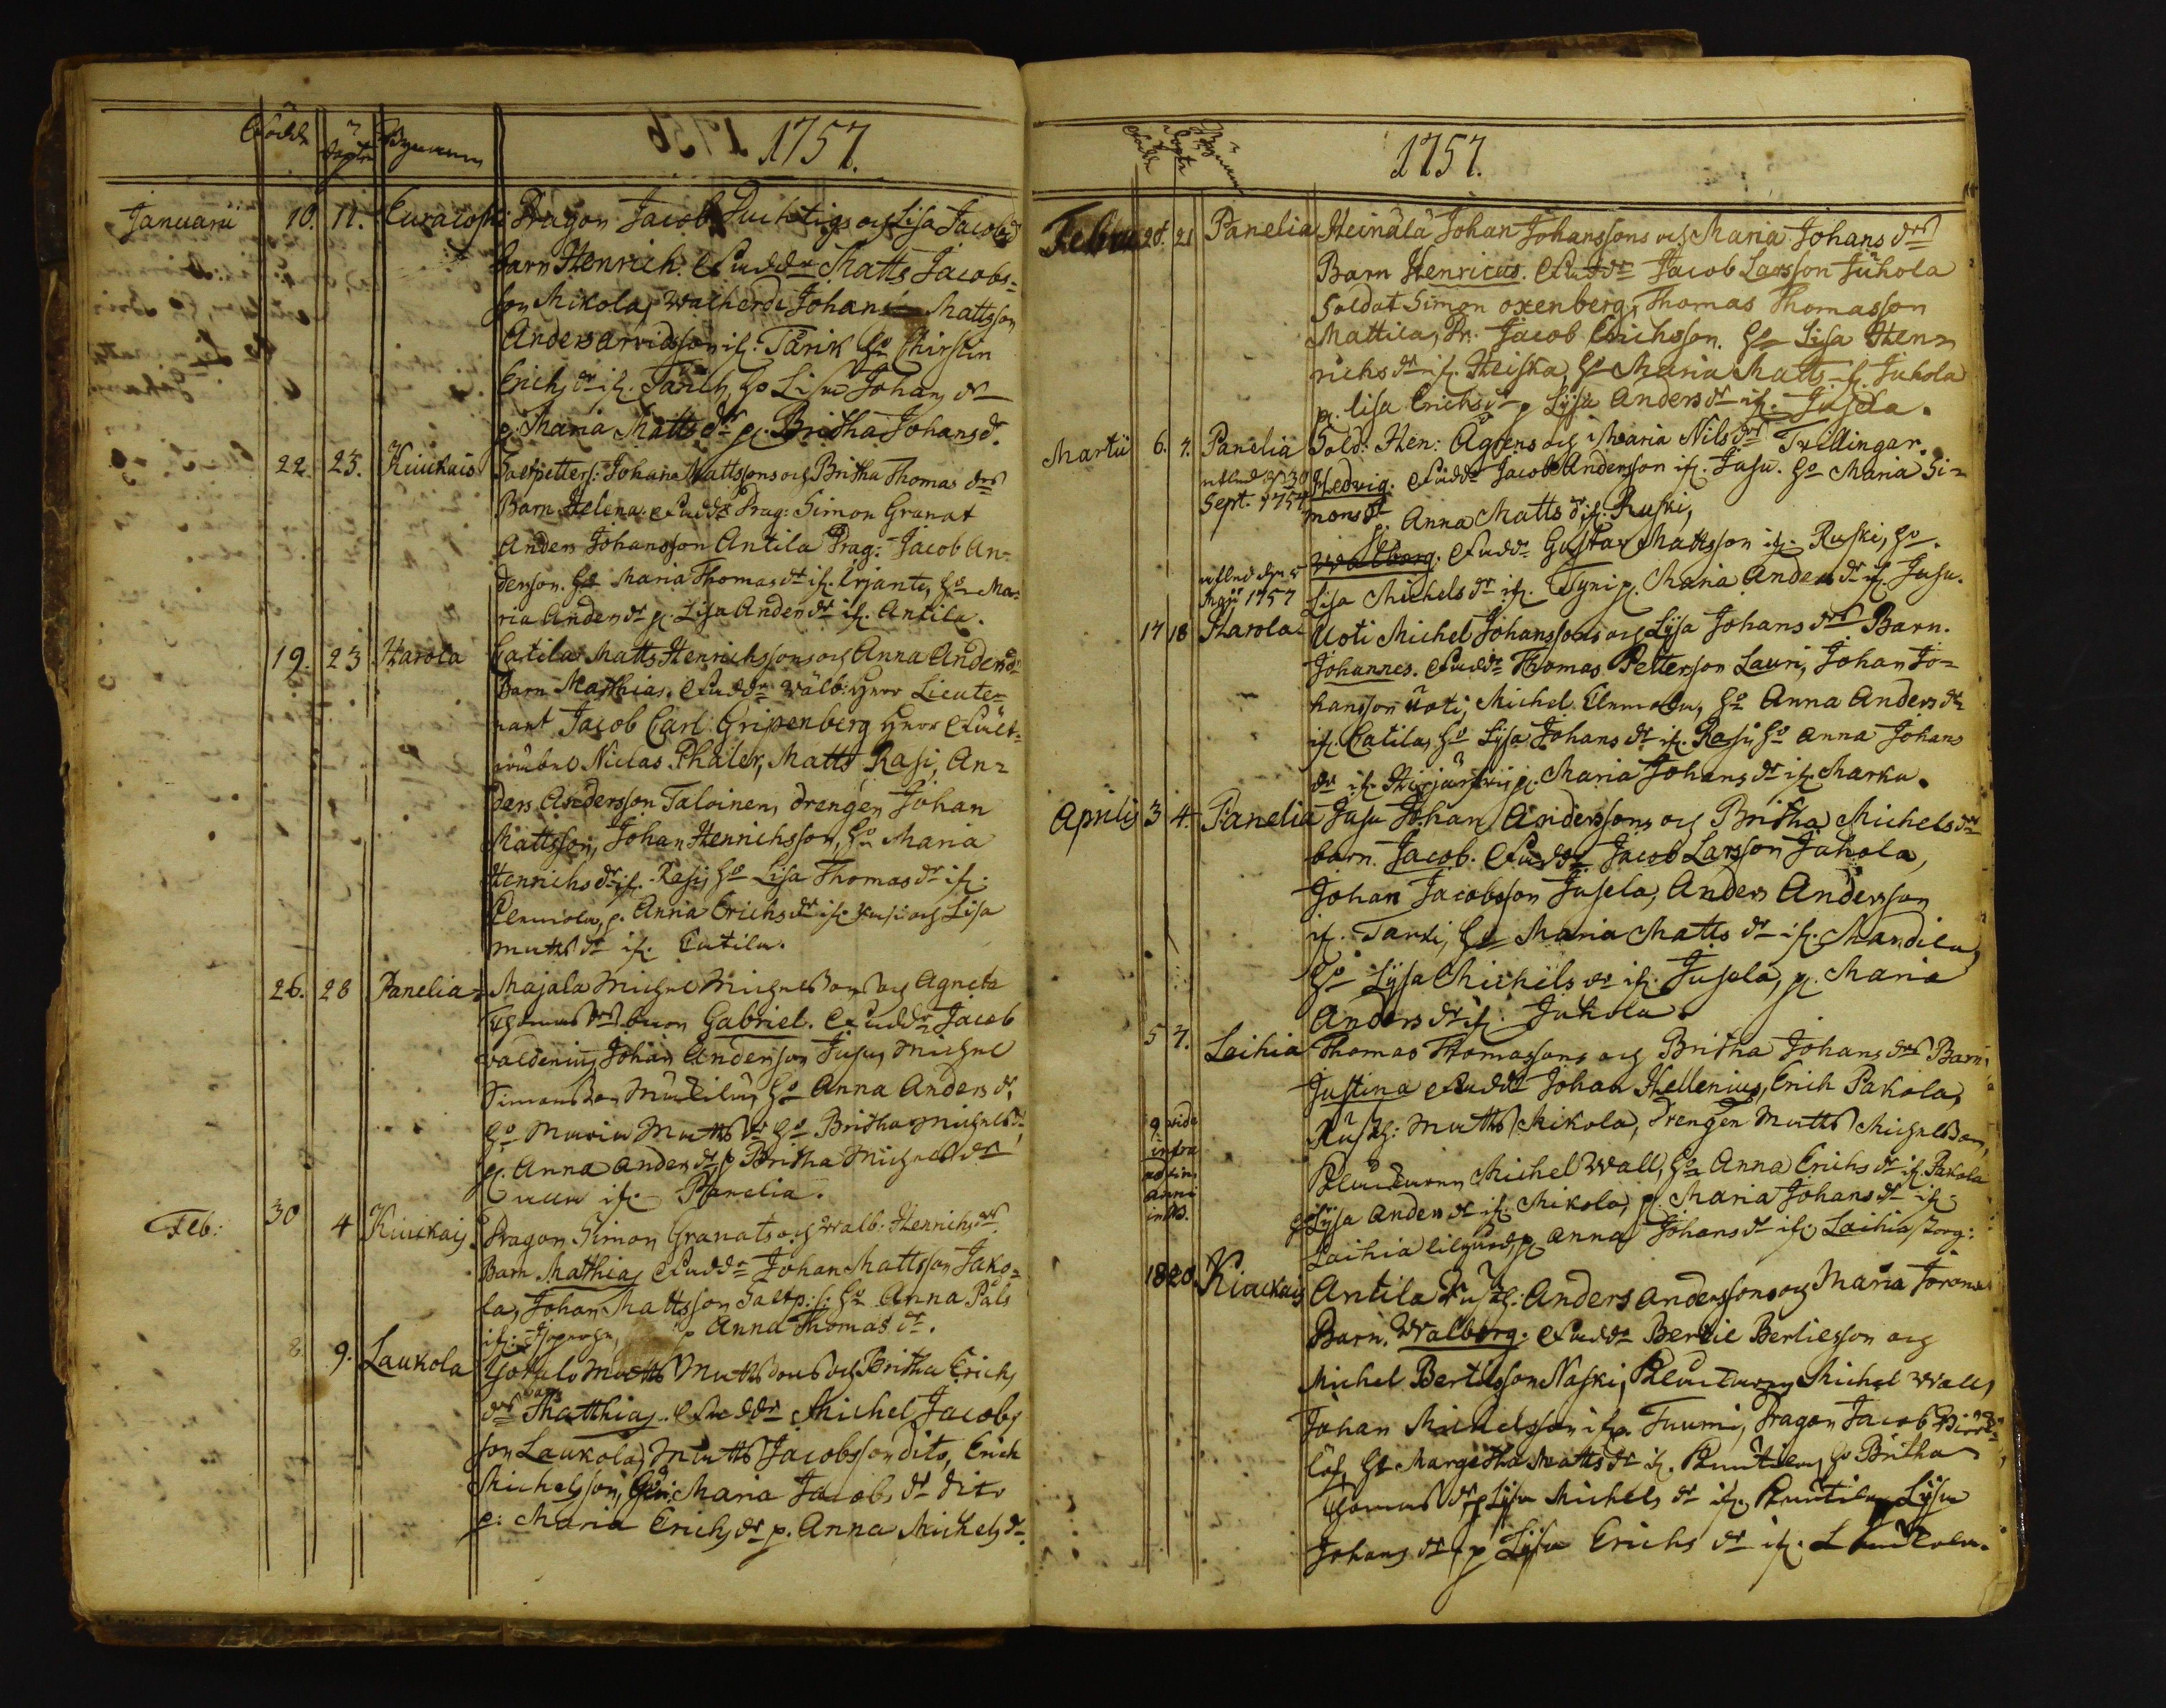 Födde Döpte Bynamn 1757.
Januarii 10. 11. Euracoski Dragon Jacob Duchtigs och Lisa Jacobsdr
barn Henrich. Faddr Matts Jacobs=
son Mikola, Johan Mattsson
Anders Arvidsson if. Tarik ho Chirstin
Erichsdr if. ho Lisa Johansdr
p. Maria Mattsdr p. Britha Johansdr.
22. 23. Kiuckais Saltpetters: Johan Mattssons och Britha Thomasdrs
Barn Helena. Faddr Drag: Simon Granat
Anders Johansson Antila Drag: Jacob An=
dersson. ho Maria Thomasdr if. ho Ma=
ria Andersdr p. Lisa Andersdr if. Antila.
19. 23 Harola Catila Matts Henrichssons och Anna Andersdrs
Barn Matthias. Faddr wälb: Herr Lieute=
nant Jacob Carl Gripenberg Herr Fält=
Niclas Phaler, Matts Rasi, An=
ders Andersson Taloinen, drengen Johan
Mattsson, Johan Henrichsson, ho Maria
Henrichsdr if. Rasi, ho Lisa Thomasdr if.
p. Anna Erichsdr if. och Lisa
Mattsdr if. Catila.
26. 28 Panelia Majala Michel Michelssons och Agneta
Thomasdrs barn Gabriel. Faddr Jacob
Valdenius, Johan Andersson Jusu, Michel
Simonsson ho Anna Andersdr,
ho Maria Mattsdr ho Britha Michelsdr,
p. Anna Andersdr, p Britha Michelsdr
if. Panelia.
Feb: 30 4 Kiuckais Dragon Simon Granats och Walb. Henrichsdrs
Barn Matthias Faddr Johan Mattsson Jako=
la, Johan Mattsson Saltp:s: ho Anna Påls
if. p Anna Thomasdr.
8. 9. Laukola Matts Mattssons och Britha Erichs
drs barn Matthias. Faddr Michel Jacobs
son Laukola, Matts Jacobsson dito, Erich
Michelsson, Maria Jacobsdr dito
p: Maria Erichsdr p. Anna Michelsdr
Födde Döpte Bynamn 1757.
Febru 20. 21 Panelia Heinälä Johan Johanssons och Maria Johansdrs
Barn Henricus. Faddr Jacob Larsson Juhola
Soldat Simon Oxenberg, Thomas Thomasson
Mattila, Dr. Jacob Erichsson. ho Lisa Hen=
richsdr if. Heiska, ho Maria Matts if. Juhola
p. Lisa Erichsdr p Lysa Andersdr if. Jusela.
Martii 6. 7. Panelia Sold: Hen: Ågrens och Maria Nilsdrs Tvillingar.
Sept. 1757 Hedvig. Faddr Jacob Andersson if. Jusu. ho Maria Si=
monsdr p. Anna Mattsdr if. Ruski,
Walborg. Faddr Gustav Mattsson if. Ruski, ho
Maji 1757 Lisa Michelsdr if. Tyni p. Maria Andersdr if. Jusu.
17 18 Harola Uoti Michel Johanssons och Lysa Johansdrs Barn.
Johannes. Faddr Thomas Pettersson Lauri, Johan Jo=
hansson Uoti, Michel Clemola, ho Anna Andersdr
if. Catila, ho Lysa Johansdr if. Rasi, ho Anna Johans
dr if. Hirjärfvi, p. Maria Johansdr if. Marka.
Aprilis 3 4. Panelia Jusu Johan Anderssons och Britha Michelsdrs
barn. Jacob. Faddr Jacob Larsson Juhola,
Johan Jacobsson Jusela, Anders Andersson
if. Tarki, ho Maria Mattsdr if. Mandila,
ho Lysa Michelsdr if. Jusela, p. Maria
Andersdr if. Juhola.
5 7. Laihia Thomas Thomassons och Britha Johansdrs Barn
Justina Faddr Johan Hellenius, Erich Pakola,
9 vide infra Rusth: Matts Mikola, drengen Matts Michelsson,
anni Michel Wall, ho Anna Erichsdr if. Pakola
in NB. ho Lysa Andersdr if. Mikola, p. Maria Johansdr if.
Laihia p Anna Johansdr if. Laihia
18 20. Kiuckais Antila Rusth: Anders Anderssons och Maria
Barn. Walborg. Faddr Bertil Bertilsson och
Michel Bertilsson Naski, Michel Wall,
Johan Michelsson if. Tuumi, Dragon Jacob
löf, ho Margetha Mattsdr if. ho Britha
Thomasdr, p Lysa Michelsdr if. Lysa
Johansdr p Lysa Erichsdr if.